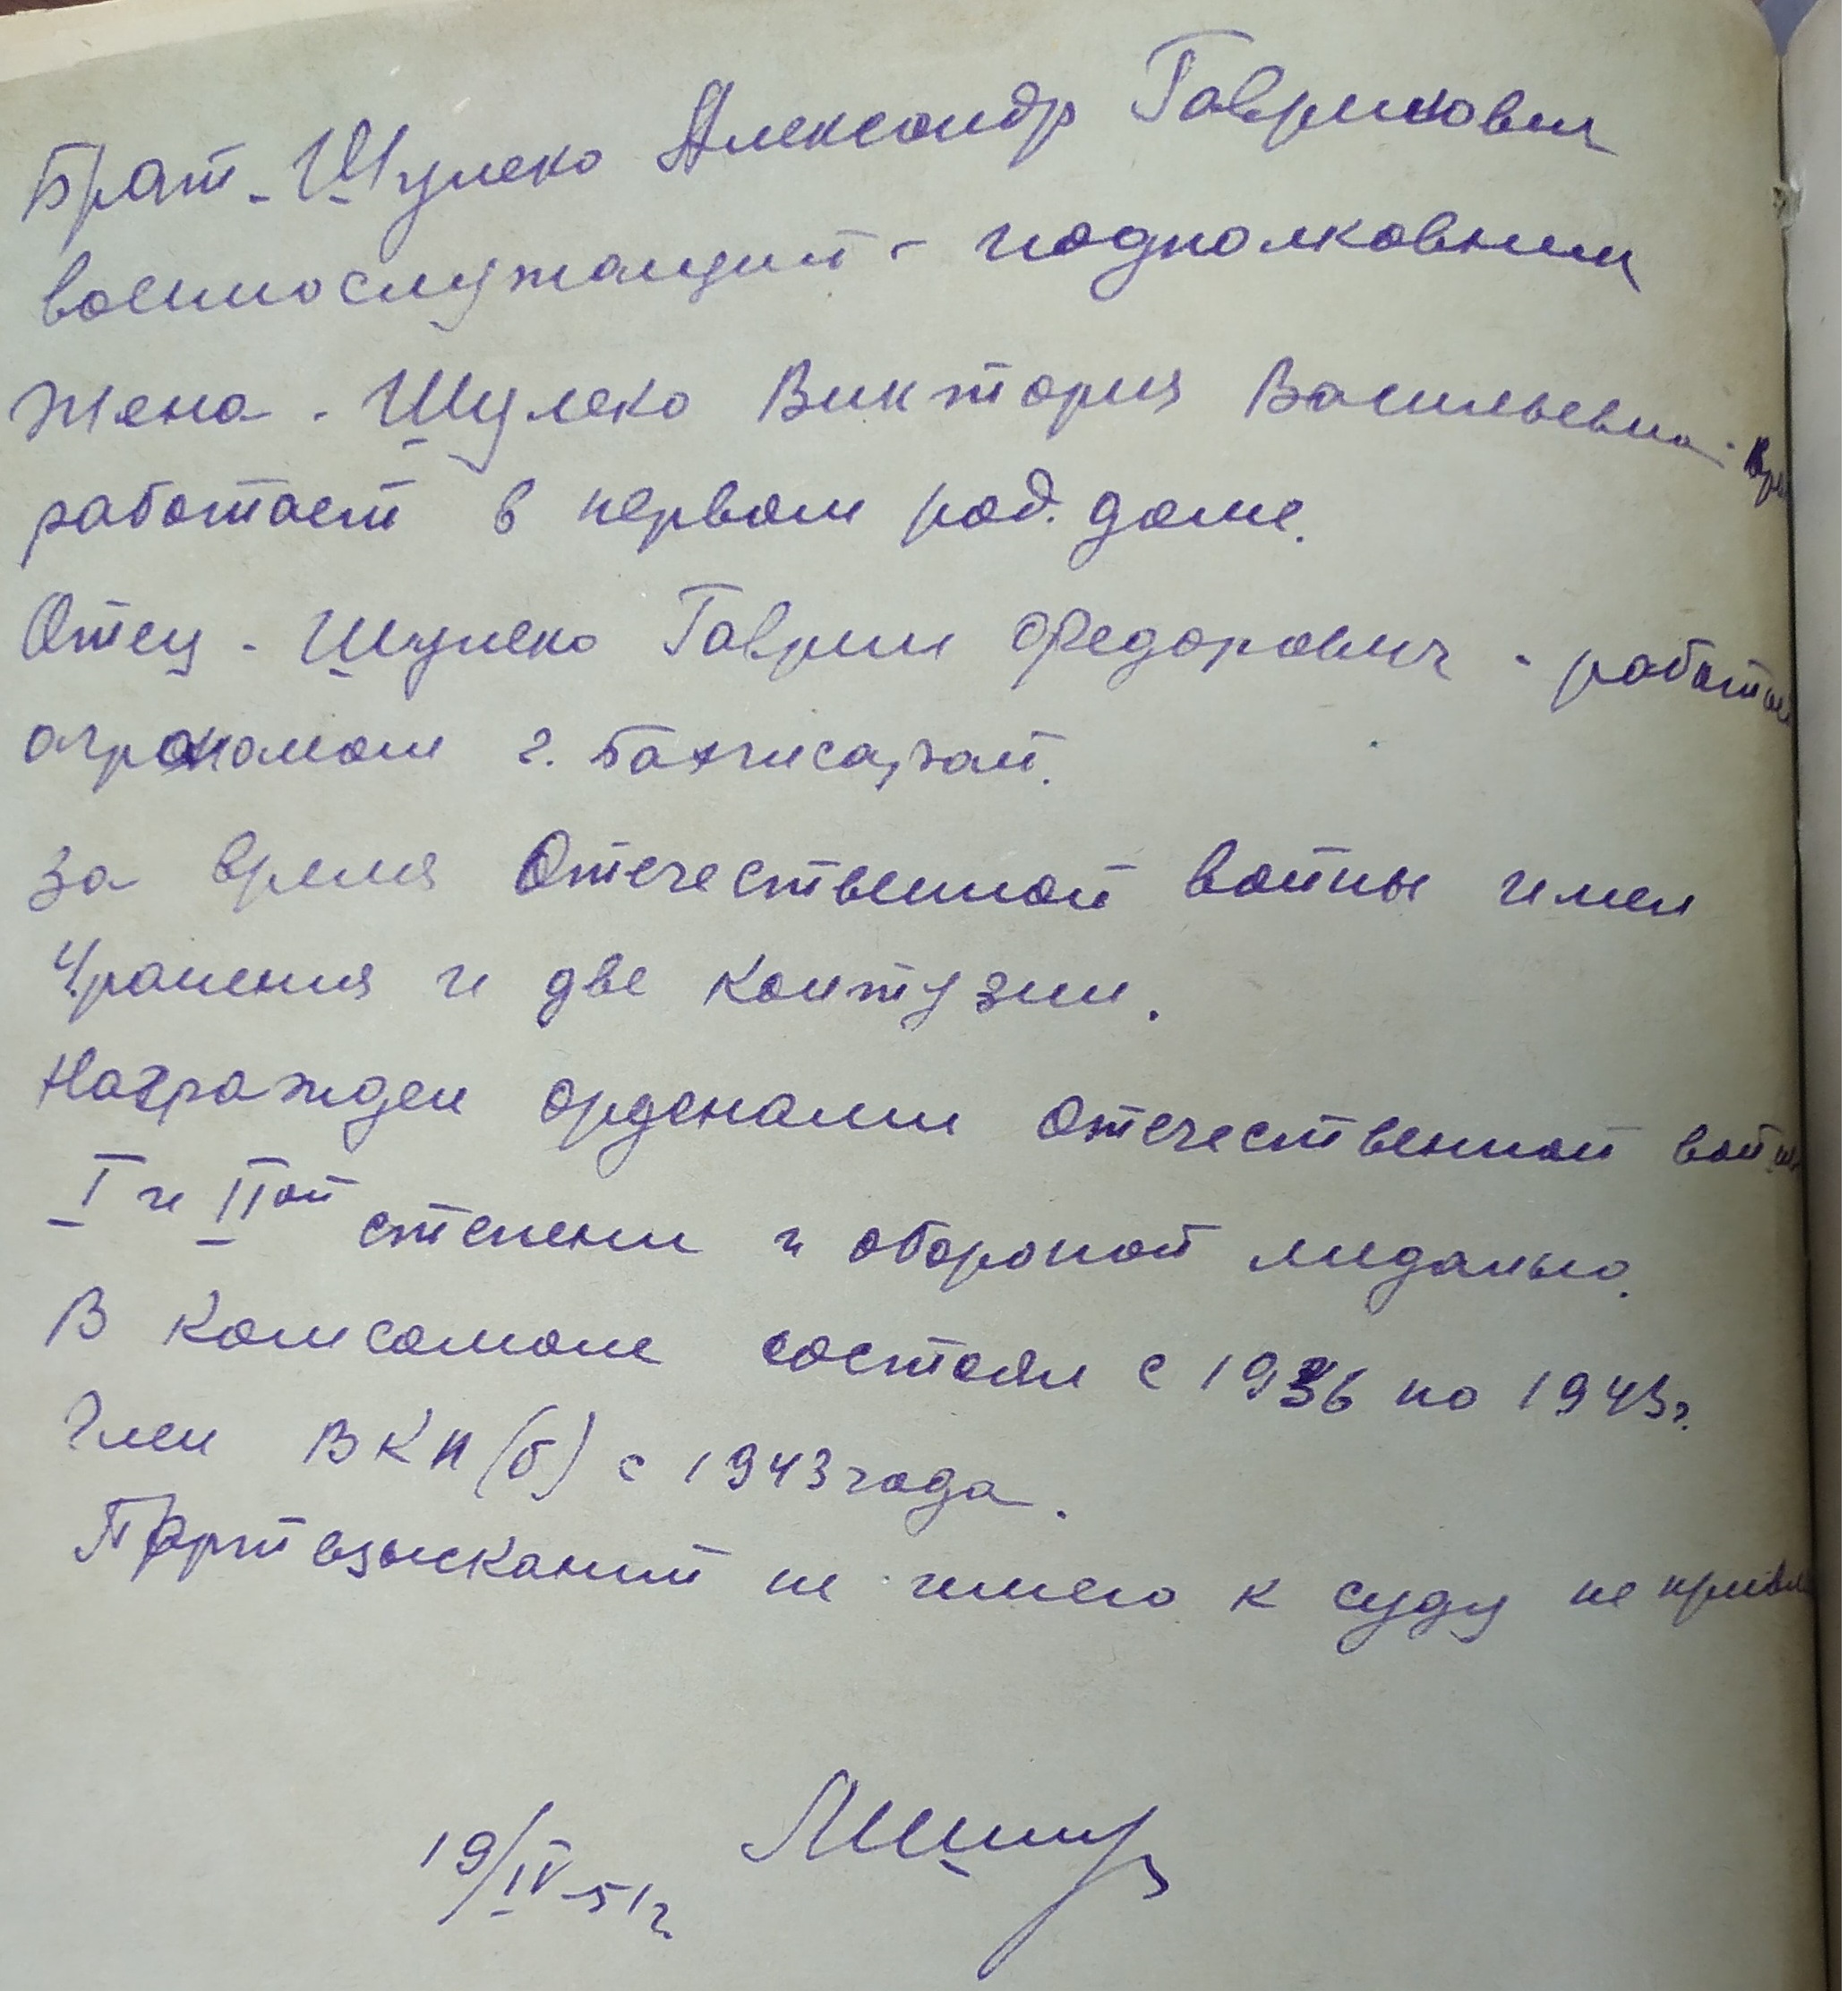 Брат - Шулеко Александр Гаврилович
военнослужащий - подполковник
Жена - Шулеко Виктория Васильевна -
работает в первом род. доме.
Отец - Шулеко Гаврил Федорович -
агрономом г. Бахчисарай.
За время Отечественной войны имел
4 ранения и две контузии.
Награжден орденами Отечественной
I и II ой степени и обороной медалью.
В комсомоле состоял с 1936 по 1943 г.
Член ВКП(б) с 1943 года.
Партвзысканий не имею к суду не
19/IV-51 г.